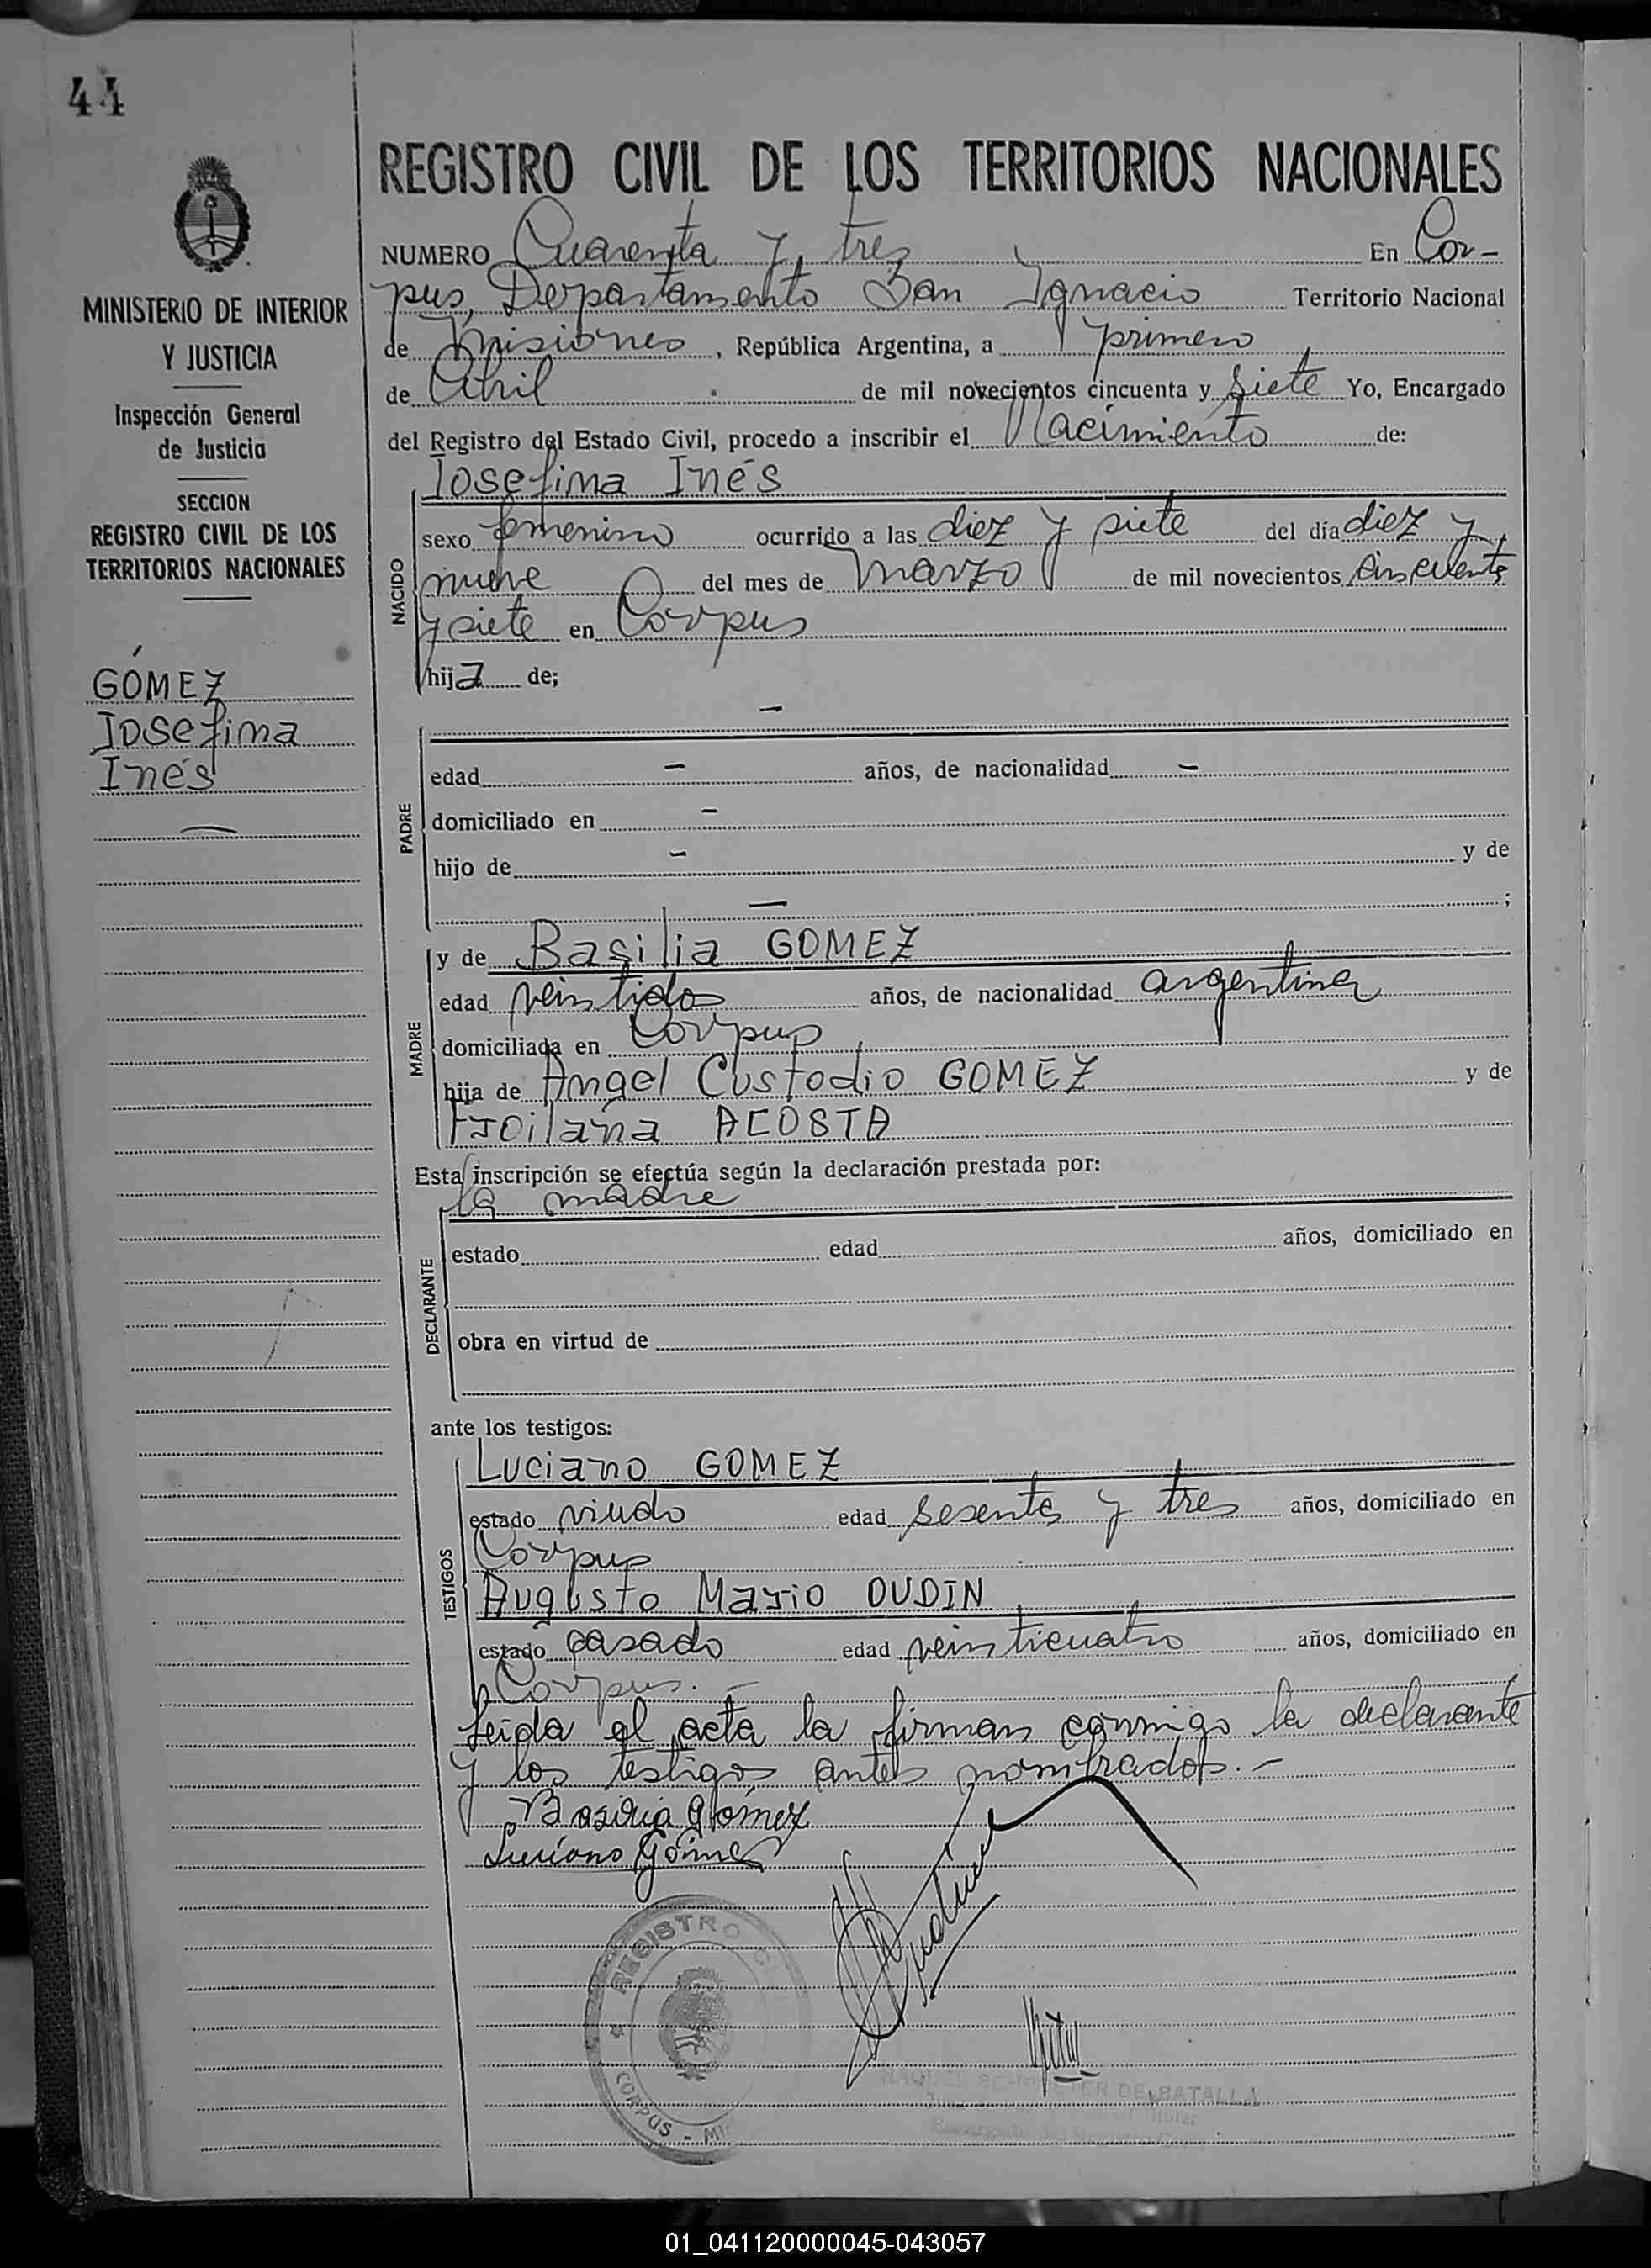 44
MINISTERIO DE INTERIOR
Y JUSTICIA
Inspección General
de Justicia
SECCION
REGISTRO CIVIL DE LOS
TERRITORIOS NACIONALES
GÓMEZ
Josefina
Inés
REGISTRO CIVIL DE LOS TERRITORIOS NACIONALES
NUMERO Cuarenta y tres En Cor-
pus, Departamento San Ignacio Territorio Nacional
de Misiones, República Argentina, a primero
de Abril de mil novecientos cincuenta y siete Yo, Encargado
del Registro del Estado Civil, procedo a inscribir el Nacimiento de:
Josefina Inés
NACIDO
sexo femenino ocurrido a las diez y siete del día diez y
nueve del mes de marzo de mil novecientos cincuenta
y siete en Corpus
hija de;
-
PADRE
edad - años, de nacionalidad -
domiciliado en -
hijo de - y de
- ;
MADRE
y de Basilia GOMEZ
edad veintidos años, de nacionalidad argentina
domiciliada en Corpus
hija de Angel Custodio GOMEZ y de
Froilana ACOSTA
Esta inscripción se efectúa según la declaración prestada por:
la madre
DECLARANTE
estado edad años, domiciliado en
obra en virtud de
ante los testigos:
TESTIGOS
Luciano GOMEZ
estado viudo edad sesenta y tres años, domiciliado en
Corpus
Augusto Mario OUDIN
estado casado edad veinticuatro años, domiciliado en
Corpus.-
Leida el acta la firman conmigo la declarante
y los testigos antes nombrados.-
Basilia Gómez
Luciano Gómez
REGISTRO
CORPUS - MI
DE BATALLA
01_041120000045-043057